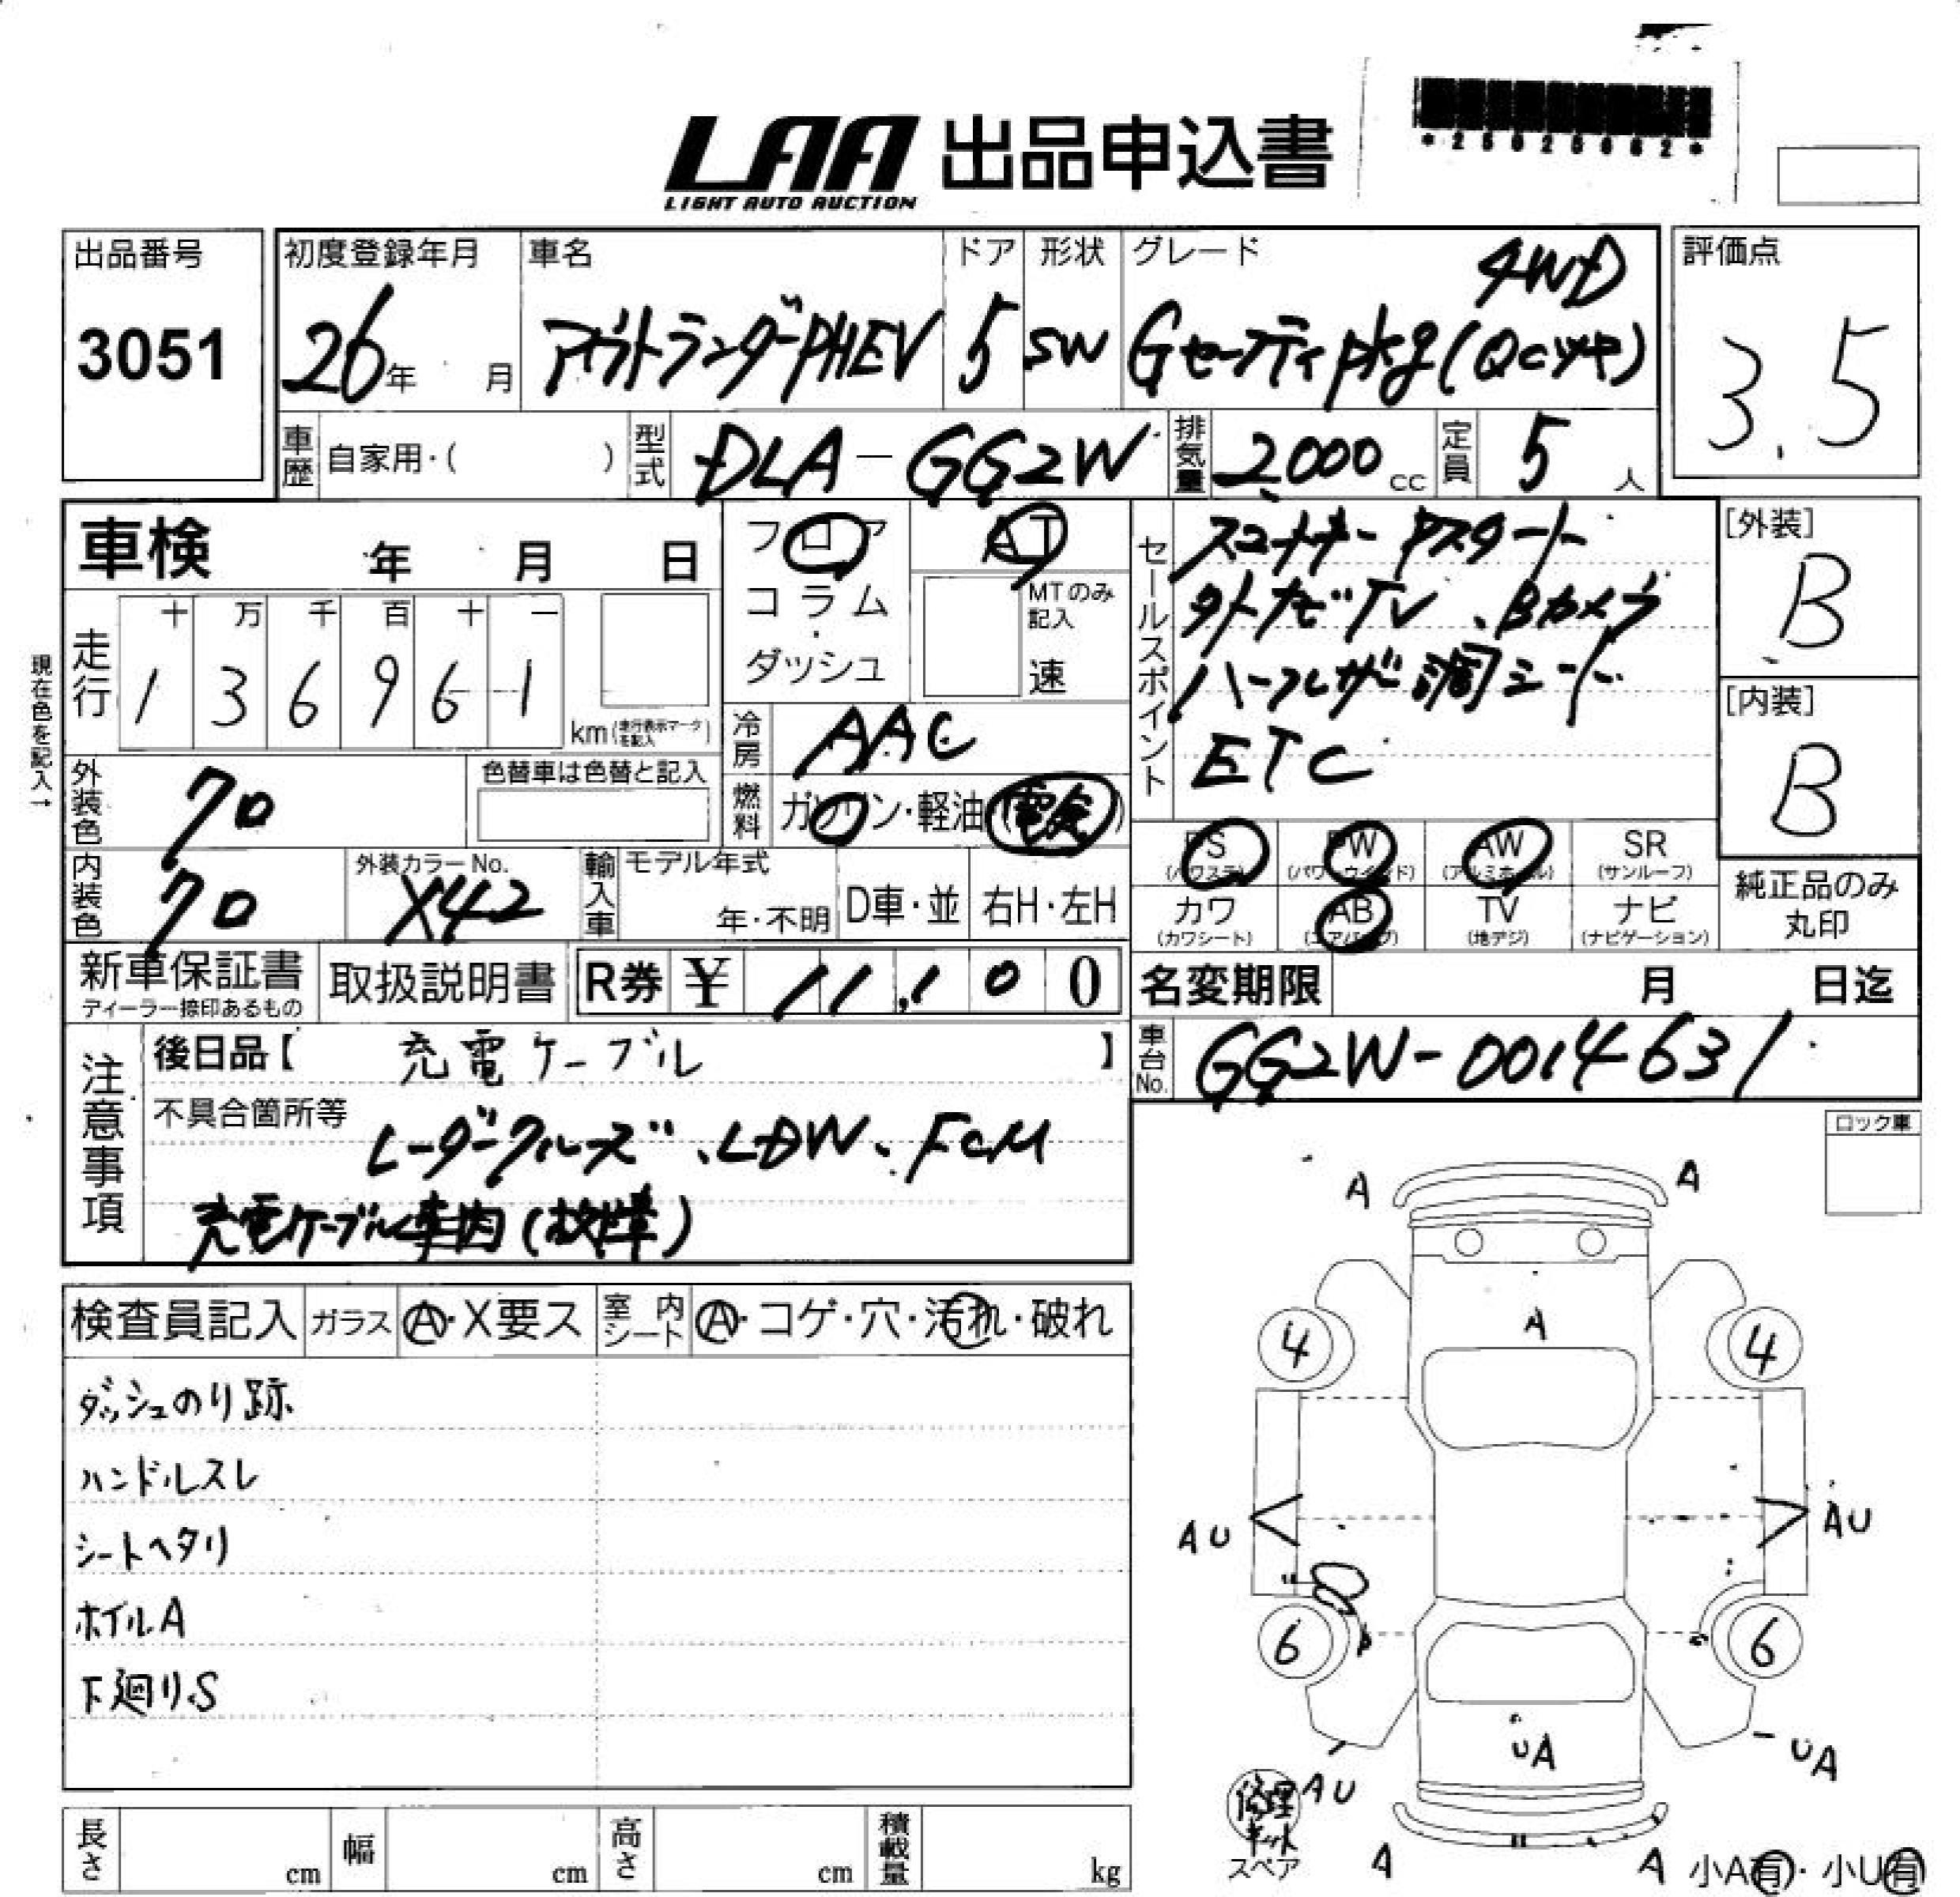 LAA 出品申込書
LIGHT AUTO AUCTION
出品番号
3051
初度登録年月
26年 月
車名
アウトランダーPHEV
ドア
5
形状
SW
グレード
4WD
Gセーフティpkg(QCツキ)
評価点
3.5
車歴 自家用・( )
型式 DLA-GG2W
排気量 2,000 cc
定員 5 人
車検 年 月 日
現在色を記入→
走行
十 万 千 百 十 一
1 3 6 9 6 1
km(走行表示マークを記入)
フロア
コラム
・
ダッシュ
AT
MTのみ記入
速
冷房 AAC
燃料 ガソリン・軽油
セールスポイント
外ナビTV、Bカメラ
ハーフレザー調シート
ETC
[外装]
B
[内装]
B
外装色 クロ
色替車は色替と記入
内装色 クロ
外装カラーNo.
X42
輸入車
モデル年式
年・不明
D車・並
右H・左H
PS
(パワステ)
PW
(パワーウインド)
AW
(アルミホイール)
SR
(サンルーフ)
カワ
(カワシート)
AB
(エアバッグ)
TV
(地デジ)
ナビ
(ナビゲーション)
純正品のみ
丸印
新車保証書
ディーラー捺印あるもの
取扱説明書
R券 ¥ 11,100
名変期限 月 日迄
車台No. GG2W-0014631
注意事項
後日品【 充電ケーブル 】
不具合箇所等
レーダークルーズ、LDW、FCM
充電ケーブル車内(故障)
ロック車
検査員記入
ガラス A・X要ス
室内シート A・コゲ・穴・汚れ・破れ
ダッシュのり跡
ハンドルスレ
シートヘタリ
ホイルA
下廻りS
A A
A
4 4
AU AU
6 6
UA
UA
AU
修理キット
スペア
A A
小A有・小U有
長さ cm
幅 cm
高さ cm
積載量 kg